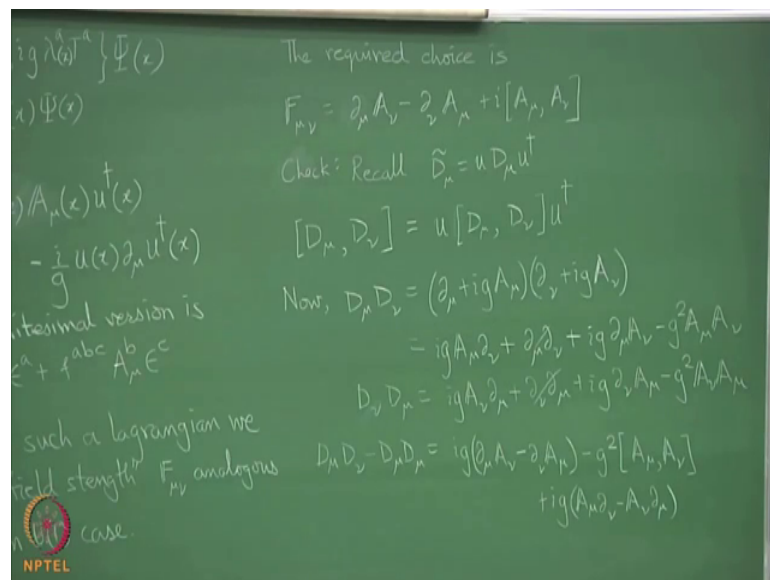 ig λ^a(x) T^a } Ψ(x)
x) Ψ(x)
) A_μ(x) u†(x)
- i/g u(x) ∂_μ u†(x)
itesimal version is
ε^a + f^{abc} A_μ^b ε^c
such a lagrangian we
ield stength" F_μν analogous
case.
The required choice is
F_μν = ∂_μ A_ν - ∂_ν A_μ + i[A_μ, A_ν]
Check: Recall D̃_μ = u D_μ u†
[D_μ, D_ν] = u [D_μ, D_ν] u†
Now, D_μ D_ν = (∂_μ + ig A_μ)(∂_ν + ig A_ν)
= ig A_μ ∂_ν + ∂_μ ∂_ν + ig ∂_μ A_ν - g² A_μ A_ν
D_ν D_μ = ig A_ν ∂_μ + ∂_ν ∂_μ + ig ∂_ν A_μ - g² A_ν A_μ
D_μ D_ν - D_μ D_μ = ig(∂_μ A_ν - ∂_ν A_μ) - g² [A_μ, A_ν]
+ ig(A_μ ∂_ν - A_ν ∂_μ)
NPTEL